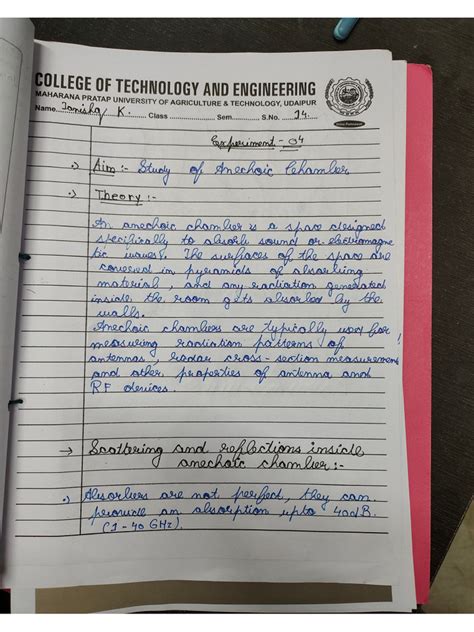 COLLEGE OF TECHNOLOGY AND ENGINEERING
MAHARANA PRATAP UNIVERSITY OF AGRICULTURE & TECHNOLOGY, UDAIPUR
Name. Tanishq K. Class Sem. S.No. 14
Experiment - 04
.) Aim :- Study of Anechoic Chamber
.) Theory :-
An anechoic chamber is a space designed
specifically to absorb sound or electromagne
tic waves. The surfaces of the space are
covered in pyramids of absorbing
material, and any radiation generated
inside the room gets absorbed by the
walls.
Anechoic chambers are typically used for
measuring radiation patterns of
antennas, radar cross-section measurement
and other properties of antenna and
RF devices.
→ Scattering and reflections inside
anechoic chamber :-
.) Absorbers are not perfect, they can
provide an absorption upto 40dB.
(1-40 GHz).